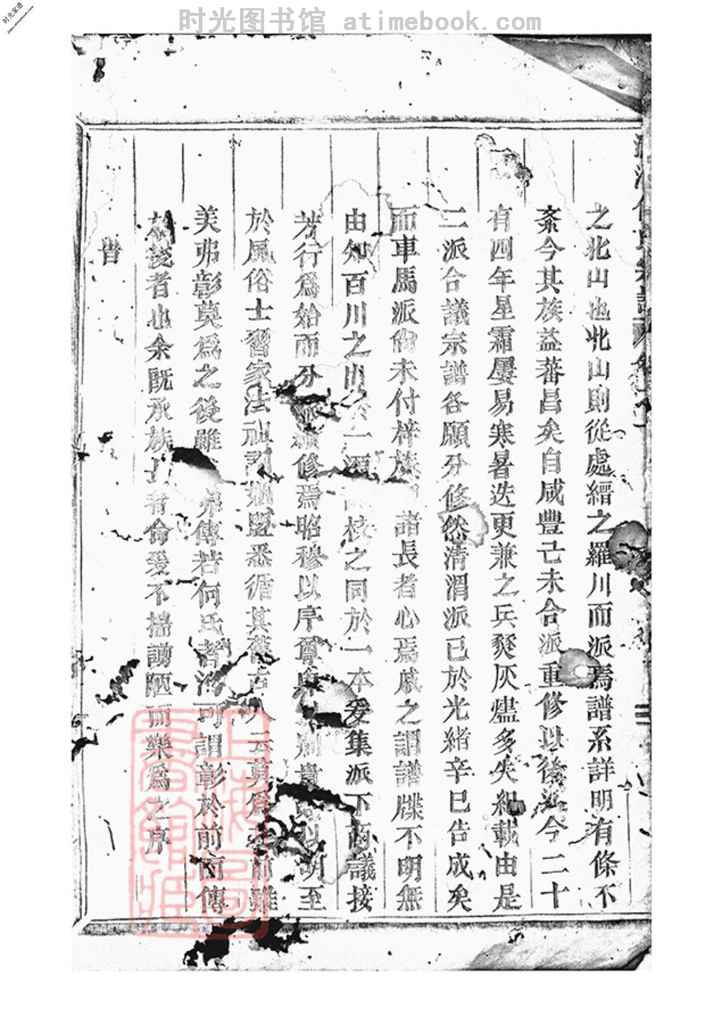 时光图书馆 atimebook.com
之北山也北山則從處縉之羅川而派焉譜系詳明有條不
紊今其族益蕃昌矣自咸豐己未合派重修以後今二十
有四年星霜屢易寒暑迭更兼之兵燹灰燼多失紀載由是
二派合議宗譜各願分修然清渭派已於光緒辛巳告成矣
而車馬派尚未付梓族諸長者心焉戚之謂譜牒不明無
由知百川之一源枝之同於一本爰集派下商議接
芳行爲始而分修焉昭穆以序明至
於風俗士習家法盟悉循其舊古人云莫爲前雖
美弗彰莫爲之後雖傳若何氏者可謂彰於前而傳
於後者也余既承族命爰不揣謭陋而樂爲之序
旹